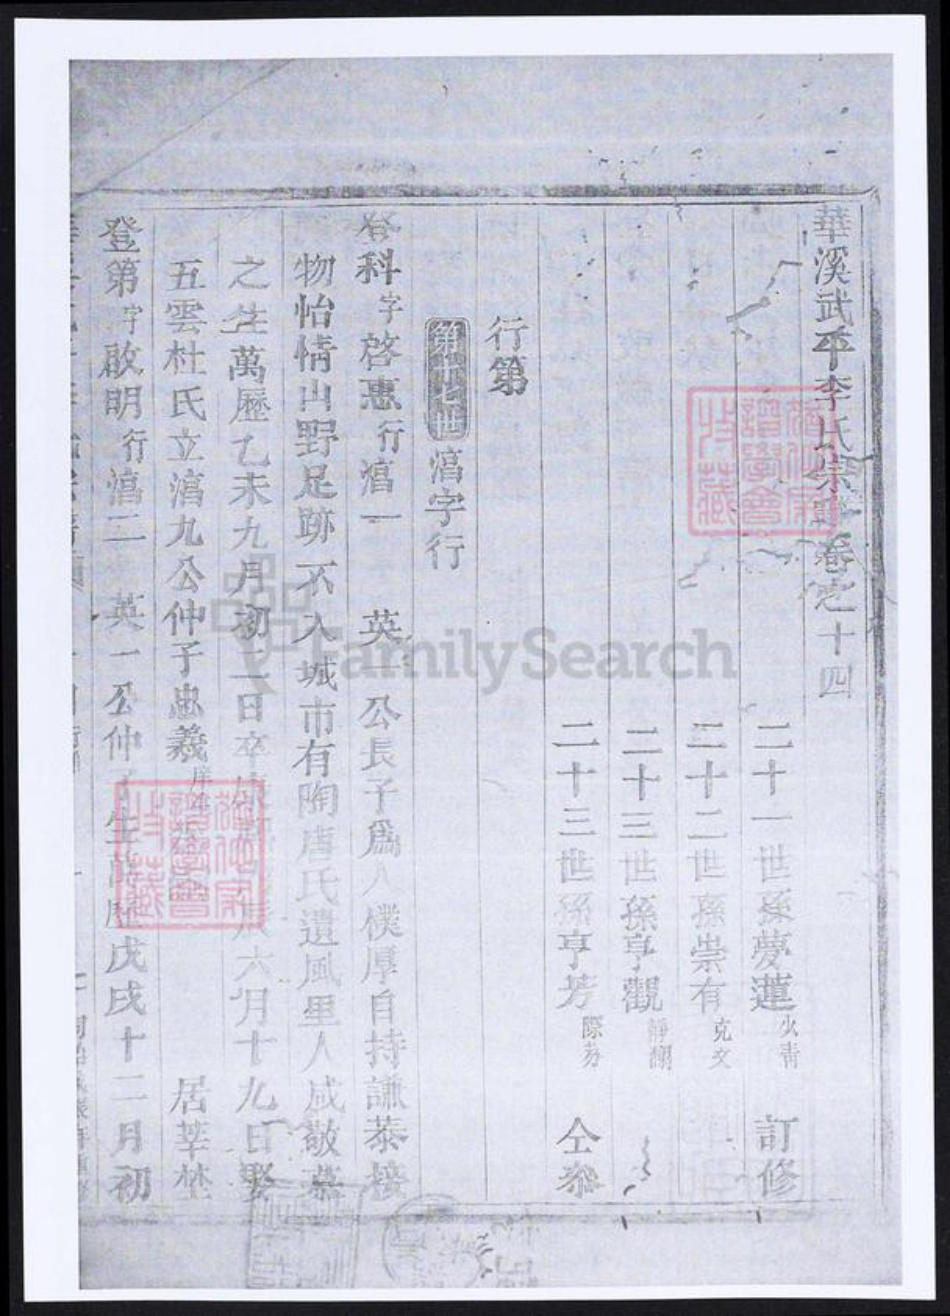 華溪武平李氏宗譜卷之十四
二十一世孫夢蓮 火青 訂修
二十二世孫崇有 克文
二十三世孫亨觀 靜瀾
二十三世孫亨芳 際芬 仝叅
行第
第廿七世 滈字行
登科字啓惠行滈一 英一公長子爲人樸厚自持謙恭接
物怡情山野足跡不入城市有陶唐氏遺風里人咸敬慕
之生萬歷乙未九月初二日卒 六月十九日娶
五雲杜氏立滈九公仲子忠義 居莘塍
登第字啟明行滈二 英一公仲子生萬歷戊戌十二月初
FamilySearch